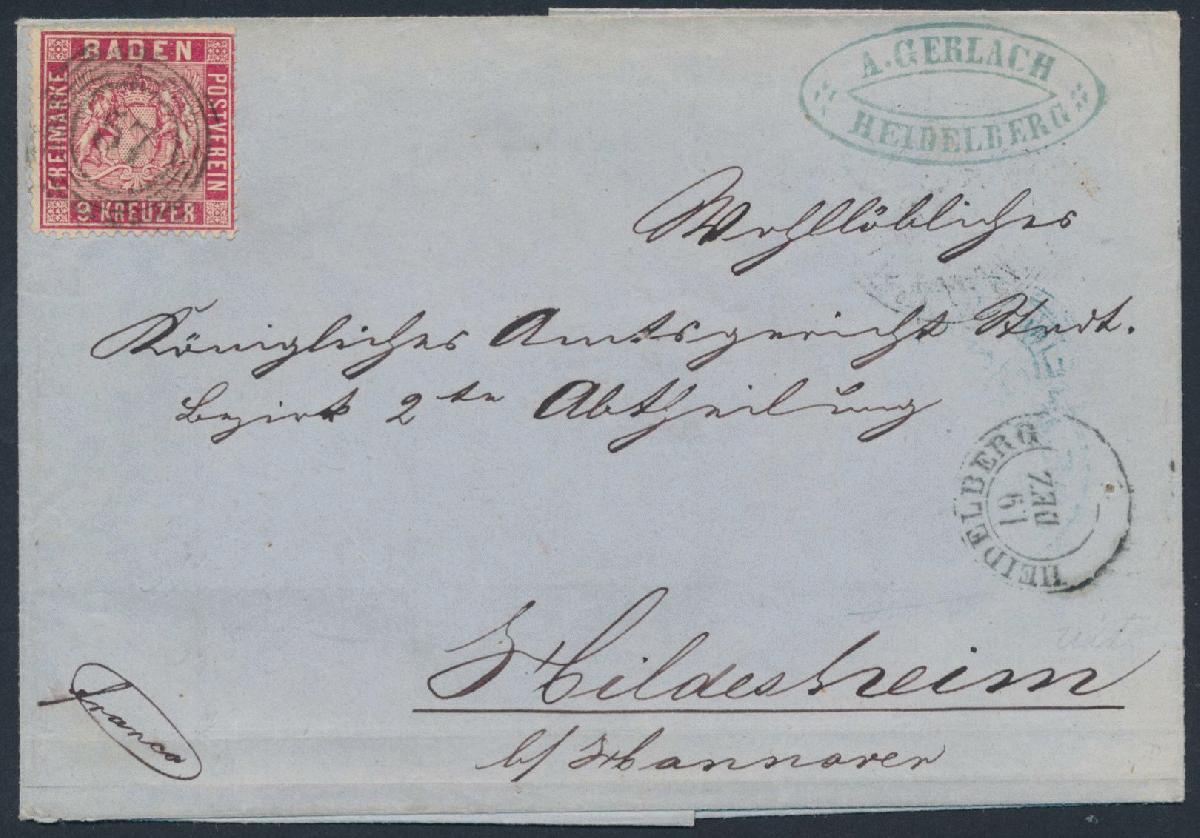 BADEN
FREIMARKE
POSTVEREIN
9 KREUZER
57
A. GERLACH
HEIDELBERG
Wohllöbliches
Königliches Amtsgericht Stadt.
Bezirk 2te Abtheilung
HEIDELBERG
19
DEZ
Hildesheim
b/ Hannover
franco